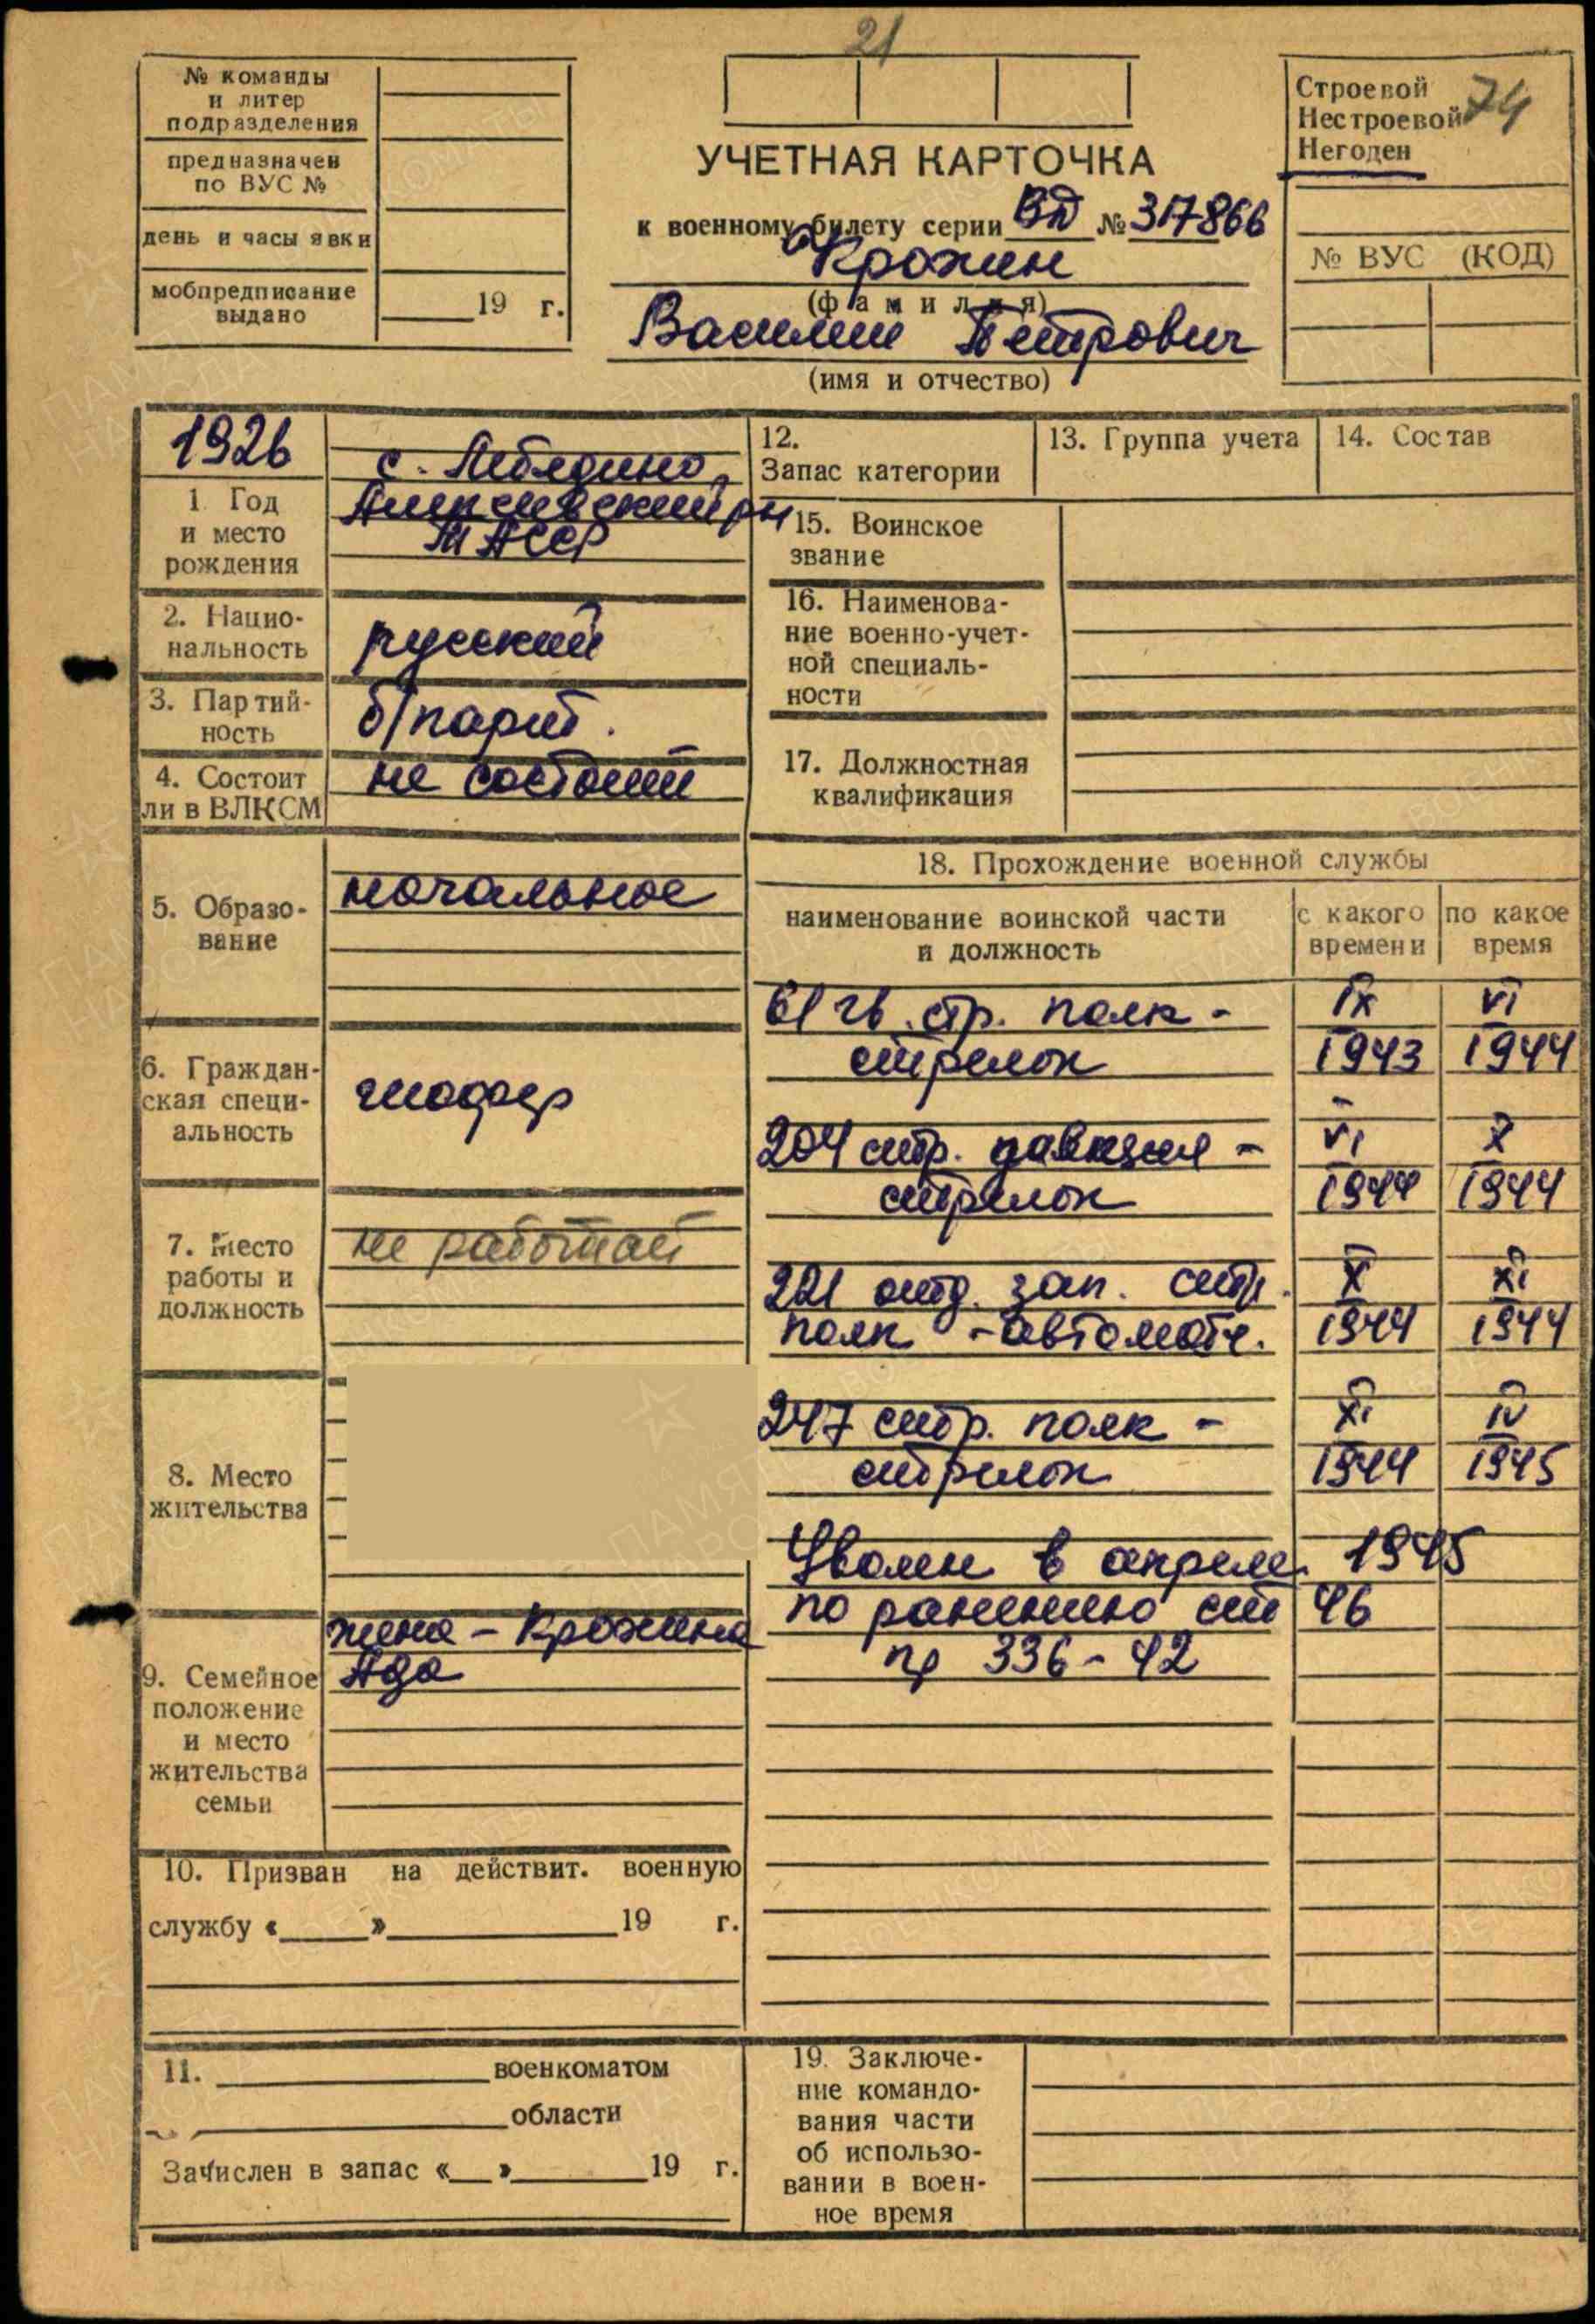 21
№ команды
и литер
подразделения
предназначен
по ВУС №
день и часы явки
мобпредписание
выдано
19 г.
УЧЕТНАЯ КАРТОЧКА
к военному билету серии ВП № 317866
Крохин
(фамилия)
Василий Петрович
(имя и отчество)
Строевой
Нестроевой
Негоден
74
№ ВУС (КОД)
1926
1 Год
и место
рождения
с. Лебедино,
Алексеевский рн
ТАССР
2. Нацио-
нальность
русский
3. Партий-
ность
б/парт.
4. Состоит
ли в ВЛКСМ
не состоит
5. Образо-
вание
начальное
6. Граждан-
ская специ-
альность
шофер
7. Место
работы и
должность
не работает
8. Место
жительства
9. Семейное
положение
и место
жительства
семьи
жена - Крохина
Ада
10. Призван на действит. военную
службу « » 19 г.
11. военкоматом
области
Зачислен в запас « » 19 г.
12.
Запас категории
13. Группа учета
14. Состав
15. Воинское
звание
16. Наименова-
ние военно-учет-
ной специаль-
ности
17. Должностная
квалификация
18. Прохождение военной службы
наименование воинской части
и должность
с какого
времени
по какое
время
61 гв. стр. полк - IX VI
стрелок 1943 1944
204 стр. дивизия - VI X
стрелок 1944 1944
221 отд. зап. стр. X XI
полк - автоматч. 1944 1944
247 стр. полк - XI IV
стрелок 1944 1945
Уволен в апреле 1945
по ранению ст 46
пр 336-42
19. Заключе-
ние командо-
вания части
об использо-
вании в воен-
ное время